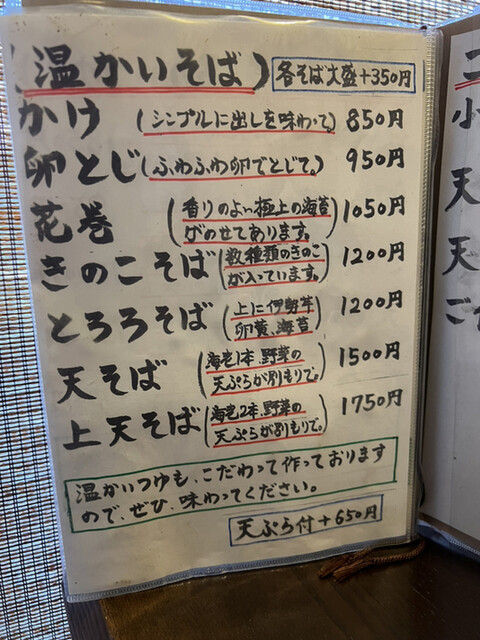 (温かいそば) 各そば大盛+350円
かけ (シンプルに出しを味わって。) 850円
卵とじ (ふわふわ卵でとじて。) 950円
花巻 (香りのよい極上の海苔
がのせてあります。) 1050円
きのこそば (数種類のきのこ
が入っています。) 1200円
とろろそば (上に伊勢芋
卵黄、海苔) 1200円
天そば (海老1本、野菜の
天ぷらが別もりで。) 1500円
上天そば (海老2本、野菜の
天ぷらが別もりで。) 1750円
温かいつゆも、こだわって作っております
ので、ぜひ、味わってください。
天ぷら付+650円
小
天
天